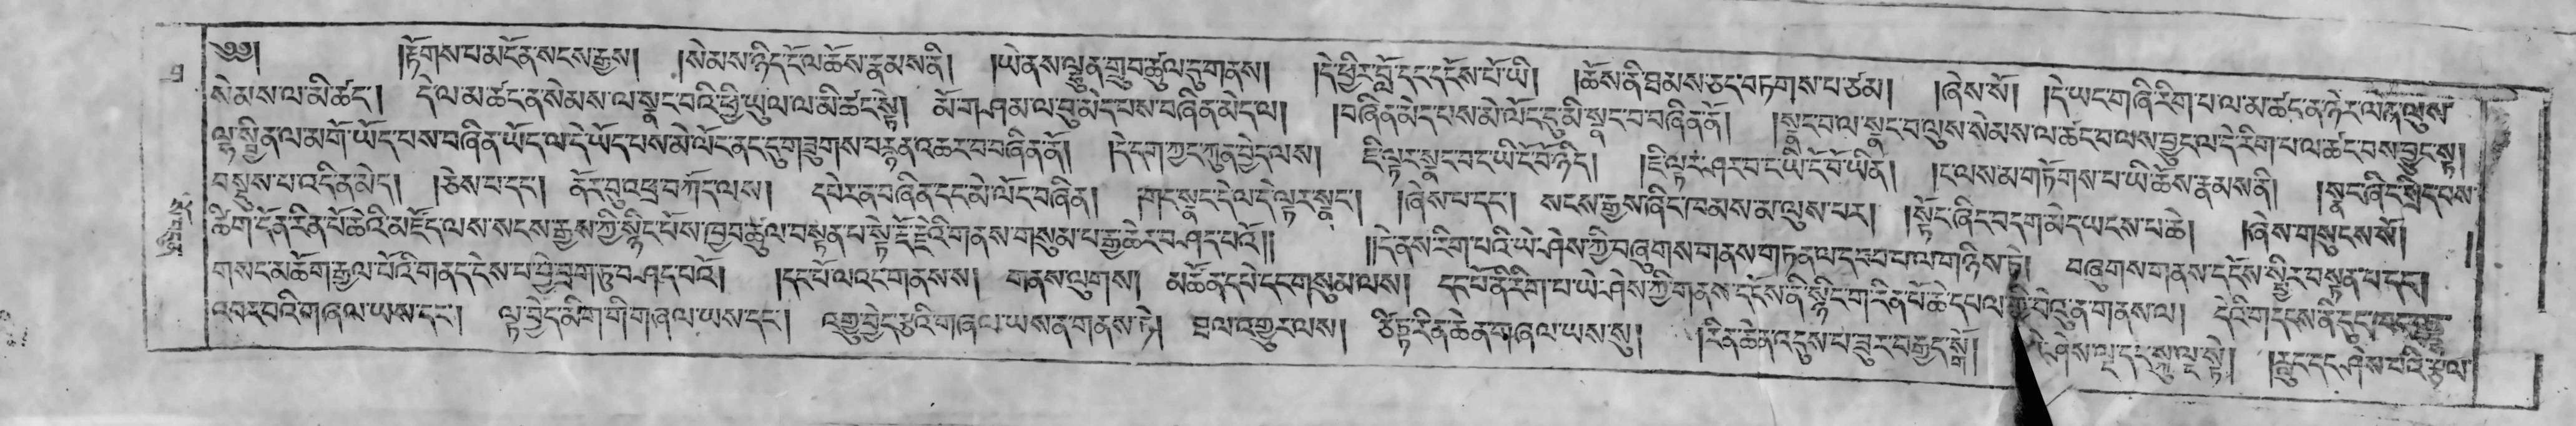 ༄༅། །རྟོགས་པ་མངོན་སངས་རྒྱས། །སེམས་ཉིད་ངོ་ལ་ཆོས་རྣམས་ནི། །ཡེ་ནས་ལྷུན་གྲུབ་ཚུལ་དུ་གནས། །དེ་ཕྱིར་བློ་དང་དངོས་པོ་ཡི། །ཆོས་ནི་ཐམས་ཅད་བཏགས་པ་ཙམ། །ཞེས་སོ། །དེ་ཡང་གཞི་རིག་པ་ལ་མ་ཚད་ན་ཉེར་ལེན་ལུས་
སེམས་ལ་མི་ཚང་། དེ་ལ་མ་ཚང་ན་སེམས་ལ་སྣང་བའི་ཕྱི་ཡུལ་ལ་མི་ཚང་སྟེ། མོ་གཤམ་ལ་བུ་མེད་པས་བཞིན་མེད་ལ། །བཞིན་མེད་པས་མེ་ལོང་དུ་མི་སྣང་བ་བཞིན་ནོ། །སྣང་བ་ལ་སྣང་བ་ལུས་སེམས་ལ་ཚང་བ་ལས་བྱུང་ལ་དེ་རིག་པ་ལ་ཚང་བས་བྱུང་སྟེ།
ལྷ་སྦྱིན་ལ་མགོ་ཡོད་པས་བཞིན་ཡོད་ལ་དེ་ཡོད་པས་མེ་ལོང་ནང་དུ་གཟུགས་བརྙན་འཆར་བ་བཞིན་ནོ། །དེ་དག་ཀྱང་ཀུན་བྱེད་ལས། ཇི་ལྟར་སྣང་བ་ང་ཡི་ངོ་བོ་ཉིད། །ཇི་ལྟར་ཤར་བ་ང་ཡི་ངོ་བོ་ཡིན། །ང་ལས་མ་གཏོགས་པ་ཡི་ཆོས་རྣམས་ནི། །སྣང་ཞིང་སྲིད་པས་
བསྡུས་པ་འདི་ན་མེད། །ཅེས་པ་དང་། ནོར་བུ་འཕྲ་བཀོད་ལས། དཔེར་ན་བཞིན་དང་མེ་ལོང་བཞིན། །གང་སྣང་དེ་ལ་དེ་ལྟར་སྣང་། །ཞེས་པ་དང་། སངས་རྒྱས་ཞིང་ཁམས་མ་ལུས་པར། །སྟོང་ཞིང་བདག་མེད་ཡངས་པ་ཆེ། །ཞེས་གསུངས་སོ། །
ཚིག་དོན་རིན་པོ་ཆེའི་མཛོད་ལས་སངས་རྒྱས་ཀྱི་སྙིང་པོས་ཁྱབ་ཚུལ་བསྟན་པ་སྟེ་རྡོ་རྗེའི་གནས་གསུམ་པ་རྒྱ་ཆེར་བཤད་པའོ།། །།དེ་ནས་རིག་པའི་ཡེ་ཤེས་ཀྱི་བཞུགས་གནས་གཏན་ལ་དབབ་པ་ལ་གཉིས་ཏེ། བཞུགས་གནས་དངོས་སྤྱིར་བསྟན་པ་དང་།
གསང་མཆོག་རྒྱལ་པོའི་གནད་ངེས་པ་བྱེ་བྲག་ཏུ་བཤད་པའོ། །དང་པོ་ལའང་གནས་ས། གནས་ལུགས། མཚོན་དཔེ་དང་གསུམ་ལས། དང་པོ་ནི་རིག་པ་ཡེ་ཤེས་ཀྱི་གནས་དངོས་ནི་སྙིང་ག་རིན་པོ་ཆེ་དཔལ་གྱི་བེའུ་ན་གནས་ལ། དེའི་གདངས་ནི་དུང་
འབར་བའི་གཞལ་ཡས་དང་། ལྟ་བྱེད་མིག་གི་གཞལ་ཡས་དང་། འགྱུ་བྱེད་རྩའི་གཞལ་ཡས་ན་གནས་ཏེ། ཐལ་འགྱུར་ལས། ཙིཏྟ་རིན་ཆེན་གཞལ་ཡས་སུ། །རིན་ཆེན་འདུས་པ་ཟུར་བརྒྱད་སྒོ། །ཤེས་ལྔ་དང་སྐུ་ལྔ་སྟེ། །རླུང་དང་ཤེས་པའི་རྩལ་